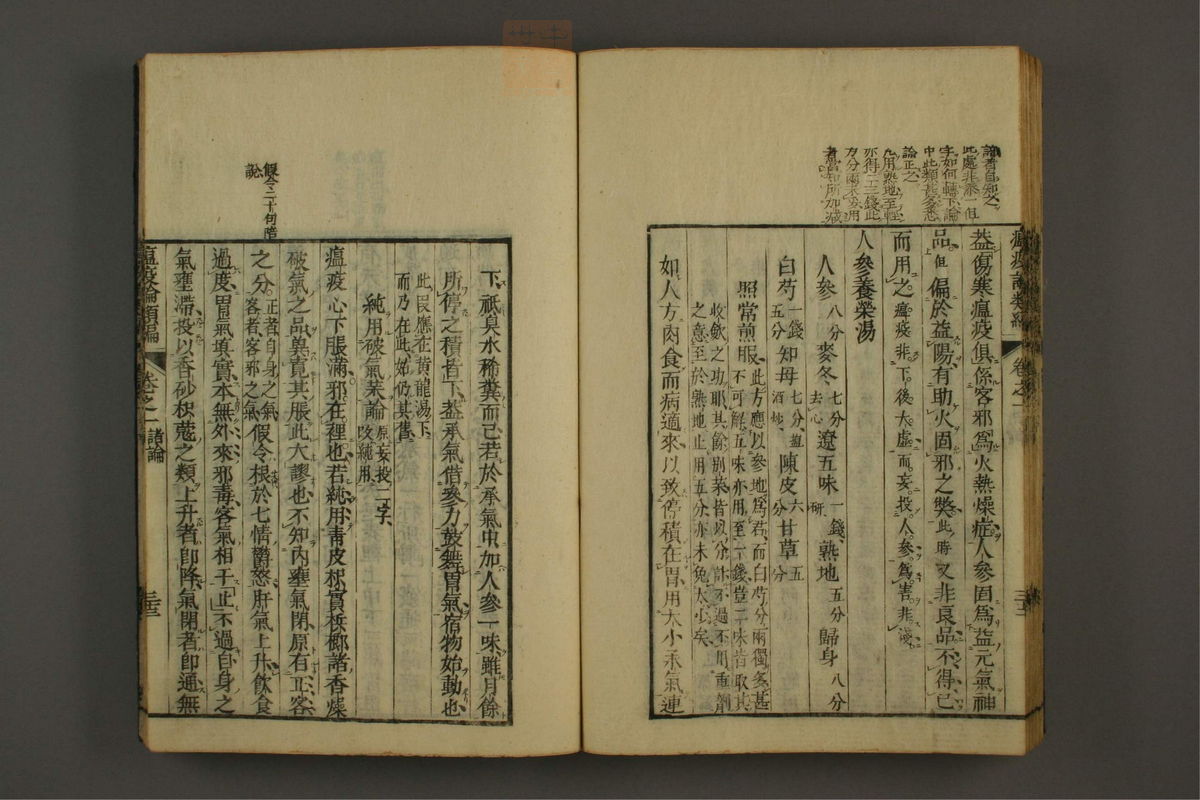 論者自知之
此處非添一但
字如何轉下論
中此類甚多悉
論正之
凡用熟地至輕
亦得二三錢此
方分兩不妥用
者當知所加減
瘟疫論類編
卷之一
三十三
蓋傷寒瘟疫俱係客邪爲火熱燥症人參固爲益元氣神
品但偏於益陽有助火固邪之弊此時又非良品不得已
而用之瘟疫非下後大虛而妄投人參爲害非淺
人參養榮湯
人參八分麥冬七分去心遼五味一錢研熟地五分歸身八分
白芍一錢五分知母七分鹽酒炒陳皮六分甘草五分
照常煎服此方應以參地爲君而白芍分兩獨多甚
不可解五味亦用至一錢豈二味皆取其
收斂之功耶其餘別藥皆以分計不過不用重劑
之意至於熟地止用五分亦未免太少矣
如人方肉食而病適來以致停積在胃用大小承氣連
下祇臭水稀糞而已若於承氣中加人參一味雖月餘
所停之積皆下蓋承氣借參力鼓舞胃氣宿物始動也
此段應在黃龍湯下
而乃在此始仍其舊
純用破氣藥論原妄投二字改純用
瘟疫心下脹滿邪在裡也若純用青皮枳實檳榔諸香燥
破氣之品冀寬其脹此大謬也不知內壅氣閉原有正客
之分正者自身之氣客者客邪之氣假令根於七情鬱怒肝氣上升飲食
過度胃氣填實本無外來邪毒客氣相干止不過自身之
氣壅滯投以香砂枳蔻之類上升者卽降氣閉者卽通無
假令二十句暗
說
瘟疫論類編
卷之一
諸論
三十三